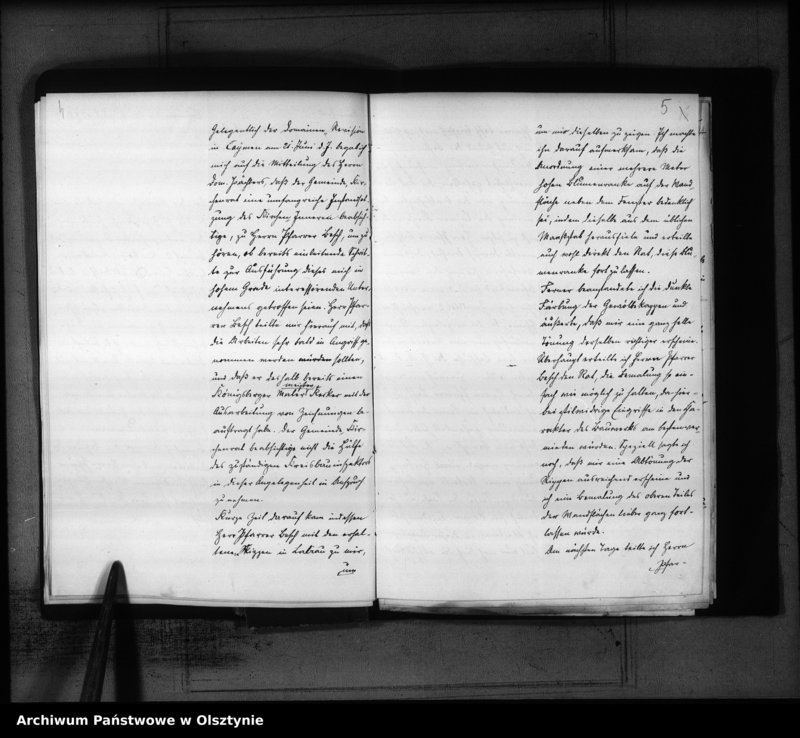 4
Gelegentlich der Domainen-Revision
in Caymen am 21. Juni d. J. begab ich
mich auf die Mitteilung des Herrn
Dom. Pächters, daß der Gemeinde-Kir-
chenrat eine umfangreiche Instandset-
zung des Kirchen-Inneren beabsich-
tige, zu Herrn Pfarrer Besch, um zu
hören, ob bereits einleitende Schrit-
te zur Ausführung dieses mich in
hohem Grade interessierenden Unter-
nehmens getroffen seien. Herr Pfar-
rer Besch teilte mir hierauf mit, daß
die Arbeiten sehr bald in Angriff ge-
nommen werden würden sollten,
und daß er deshalb bereits einen
meister
Königsberger Maler mit der
Ausarbeitung von Zeichnungen be-
auftragt habe. Der Gemeinde-Kir-
chenrat beabsichtige nicht die Hülfe
des zuständigen Kreisbauinspektors
in dieser Angelegenheit in Anspruch
zu nehmen.
Kurze Zeit darauf kam indessen
Herr Pfarrer Besch mit den erhal-
tenen Skizzen in Labiau zu mir,
um
5
um mir dieselben zu zeigen. Ich machte
ihn darauf aufmerksam, daß die
Anordnung einer mehrere Meter
hohen Blumenranke auf der Wand-
fläche neben dem Fenster bedenklich
sei, indem dieselbe aus dem üblichen
Maaßstab herausfiele und erteilte
auch wohl direkt den Rat, diese Blu-
menranke fortzulassen.
Ferner beanstandete ich die dunkle
Färbung der Gewölbekappen und
äußerte, daß mir eine ganz helle
Tönung derselben richtiger erscheine.
Überhaupt erteilte ich Herrn Pfarrer
Besch den Rat, die Bemalung so ein-
fach wie möglich zu halten, da hier-
bei stilwidrige Eingriffe in den Cha-
rakter des Bauwerks am besten ver-
mieden würden. Speziell sagte ich
noch, daß mir eine Abtönung der
Rippen ausreichend erscheine und
ich eine Bemalung des oberen Teiles
der Wandflächen lieber ganz fort-
lassen würde.
Am nächsten Tage teilte ich Herrn
Pfar-
Archiwum Państwowe w Olsztynie